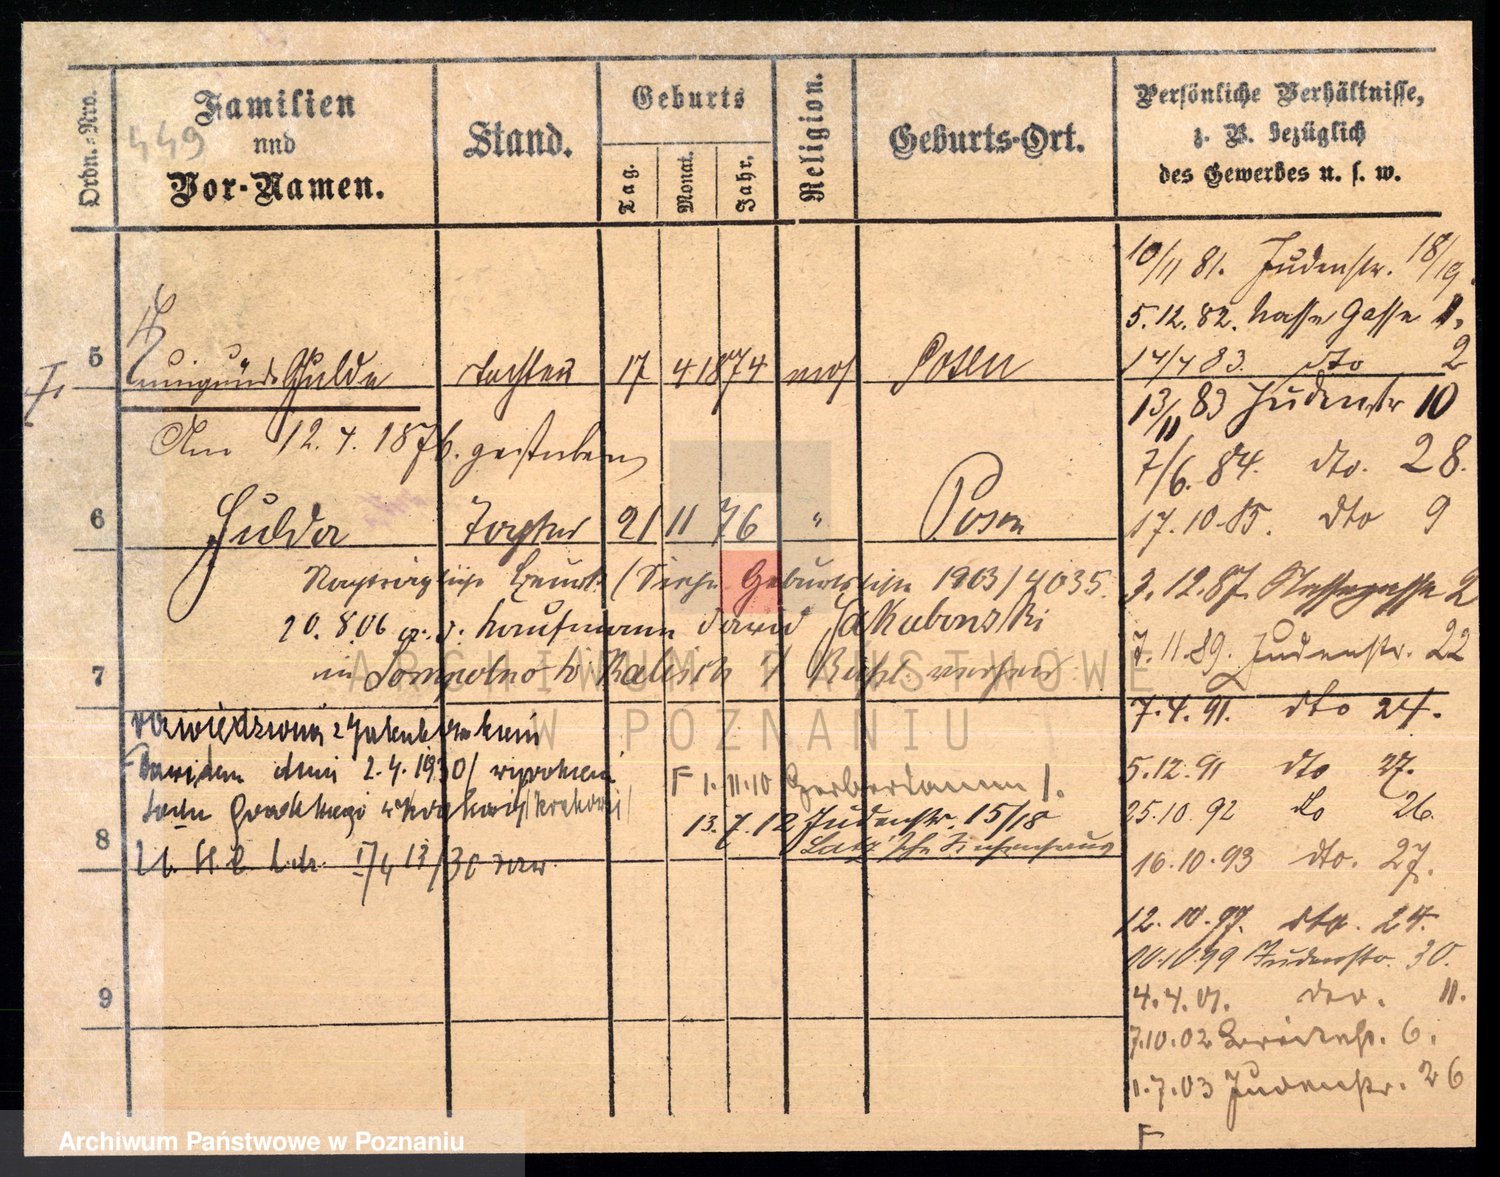 Ordn.=Nro.
449
Familien
und
Vor-Namen.
Stand.
Geburts
Tag.
Monat.
Jahr.
Religion.
Geburts-Ort.
Persönliche Verhältnisse,
z. B. bezüglich
des Gewerbes u. s. w.
10/11 81. Judenstr. 18/19.
5.12.82. Nasse Gasse 1.
14/4 83. dto 2
5 Hulda Tochter 17 4 1874 mos Posen
13/11 83 Judenstr 10
Am 12.4.1876. gestorben
7/6. 84. dto. 28.
6 Hulda Tochter 21 11 76 " Posen
17.10.85. dto 9
Nachträglich bemerkt (Siehe Geburtsliste 1903/4035.
3.12.87. Nassegasse 2
20.8.06 a. d. Kaufmann David Jakubowski
7.11.89. Judenstr. 22
7 in Sompolno b/Kalisch i/ Rußl.
7.4.91. dto 24.
rozwiedziona z Jakubowskim
Dawidem dnia 2.4.1930 / wyrokiem
5.12.91 dto 27.
F 1.11.10 Gerberdamm 1.
Sądu Grodzkiego w Krakowie
25.10.92 do 26.
13.7.12 Judenstr. 15/18
8
16.10.93 dto. 27.
12.10.97. dto. 24.
10.10.99 Judenstr. 30.
9
4.4.01. dto. 11.
7.10.02 6.
1.7.03 Judenstr. 26
F
ARCHIWUM PAŃSTWOWE
W POZNANIU
Archiwum Państwowe w Poznaniu